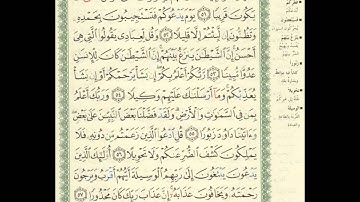 يَكُونَ قَرِيبًا ٥١ يَوْمَ يَدْعُوكُمْ فَتَسْتَجِيبُونَ بِحَمْدِهِۦ
وَتَظُنُّونَ إِن لَّبِثْتُمْ إِلَّا قَلِيلًا ٥٢ وَقُل لِّعِبَادِى يَقُولُوا۟ ٱلَّتِى هِىَ
أَحْسَنُ إِنَّ ٱلشَّيْطَٰنَ يَنزَغُ بَيْنَهُمْ إِنَّ ٱلشَّيْطَٰنَ كَانَ لِلْإِنسَٰنِ
عَدُوًّا مُّبِينًا ٥٣ رَّبُّكُمْ أَعْلَمُ بِكُمْ إِن يَشَأْ يَرْحَمْكُمْ أَوْ إِن يَشَأْ
يُعَذِّبْكُمْ وَمَآ أَرْسَلْنَٰكَ عَلَيْهِمْ وَكِيلًا ٥٤ وَرَبُّكَ أَعْلَمُ
بِمَن فِى ٱلسَّمَٰوَٰتِ وَٱلْأَرْضِ وَلَقَدْ فَضَّلْنَا بَعْضَ ٱلنَّبِيِّۦنَ عَلَىٰ بَعْضٍ
وَءَاتَيْنَا دَاوُۥدَ زَبُورًا ٥٥ قُلِ ٱدْعُوا۟ ٱلَّذِينَ زَعَمْتُم مِّن دُونِهِۦ فَلَا
يَمْلِكُونَ كَشْفَ ٱلضُّرِّ عَنكُمْ وَلَا تَحْوِيلًا ٥٦ أُو۟لَٰٓئِكَ ٱلَّذِينَ
يَدْعُونَ يَبْتَغُونَ إِلَىٰ رَبِّهِمُ ٱلْوَسِيلَةَ أَيُّهُمْ أَقْرَبُ وَيَرْجُونَ
رَحْمَتَهُۥ وَيَخَافُونَ عَذَابَهُۥٓ إِنَّ عَذَابَ رَبِّكَ كَانَ مَحْذُورًا ٥٧